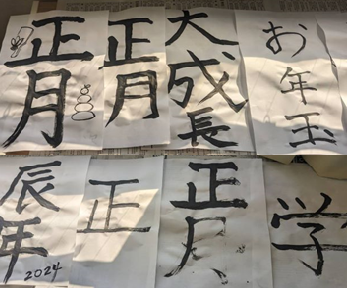 正月
正月
大成長
お年玉
辰年
2024
正
正月
学